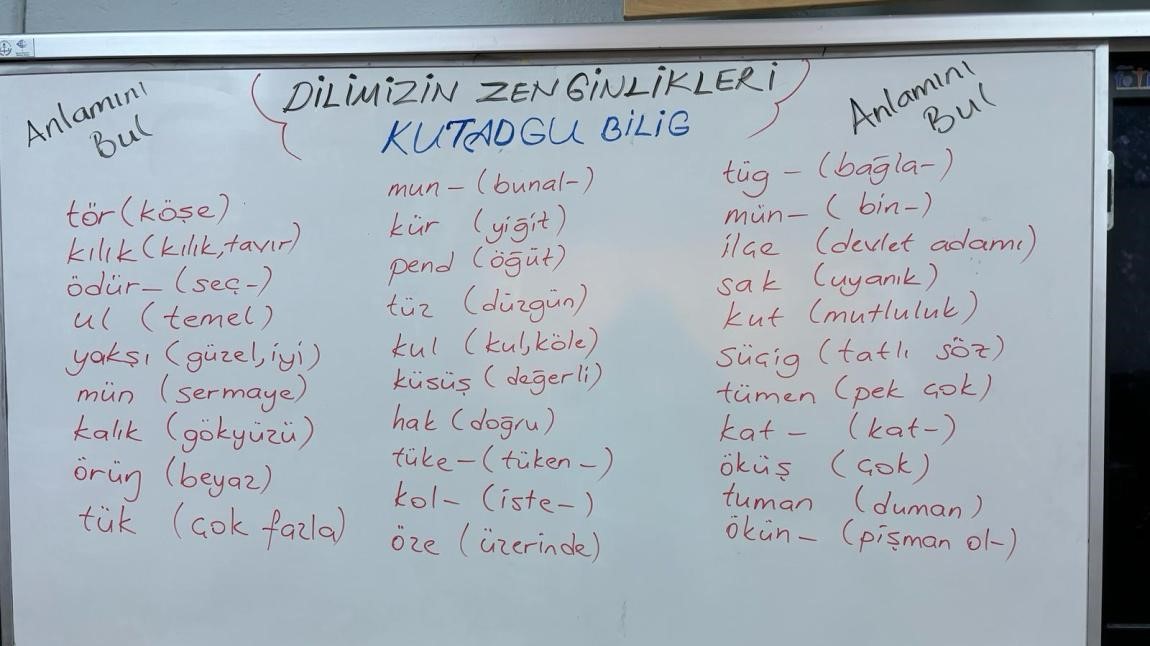 DİLİMİZİN ZENGİNLİKLERİ
KUTADGU BİLİG
Anlamını
Bul
Anlamını
Bul
tör (köşe)
kılık (kılık, tavır)
ödür- (seç-)
ul (temel)
yakşı (güzel, iyi)
mün (sermaye)
kalık (gökyüzü)
örüŋ (beyaz)
tük (çok fazla)
mun- (bunal-)
kür (yiğit)
pend (öğüt)
tüz (düzgün)
kul (kul, köle)
küsüş (değerli)
hak (doğru)
tüke- (tüken-)
kol- (iste-)
öze (üzerinde)
tüg- (bağla-)
mün- (bin-)
ilçe (devlet adamı)
sak (uyanık)
kut (mutluluk)
süçig (tatlı söz)
tümen (pek çok)
kat- (kat-)
öküş (çok)
tuman (duman)
ökün- (pişman ol-)